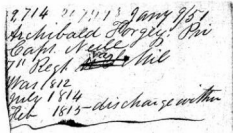 2714 Jany 9/51
Archibald Forgey Pri
Capt. Neill P
7" Regt Mil
War 1812
July 1814
Feb 1815 - discharge within